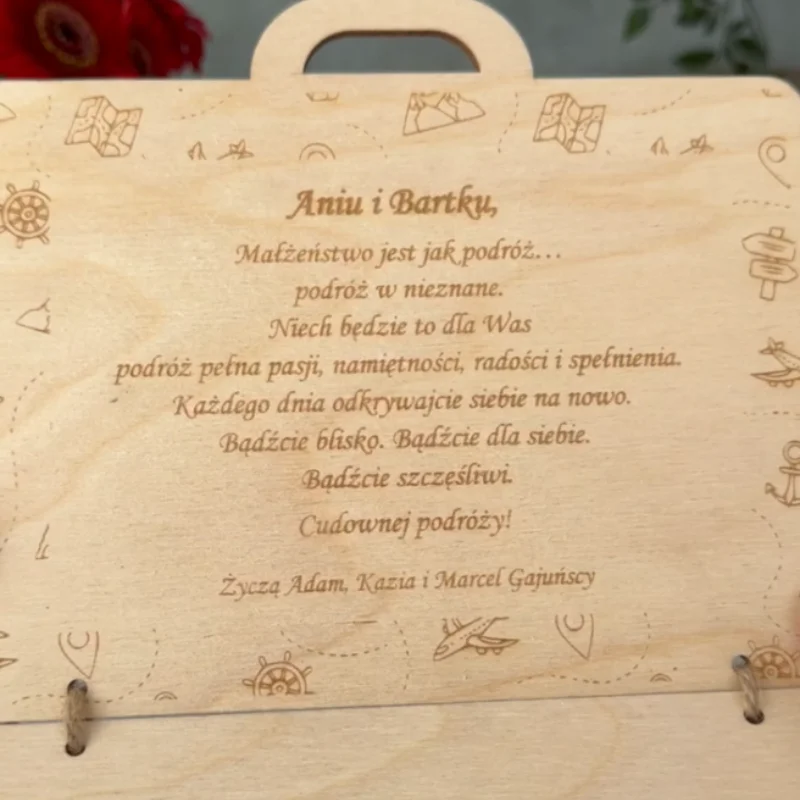 Aniu i Bartku,
Małżeństwo jest jak podróż...
podróż w nieznane.
Niech będzie to dla Was
podróż pełna pasji, namiętności, radości i spełnienia.
Każdego dnia odkrywajcie siebie na nowo.
Bądźcie blisko. Bądźcie dla siebie.
Bądźcie szczęśliwi.
Cudownej podróży!
Życzą Adam, Kazia i Marcel Gajuńscy